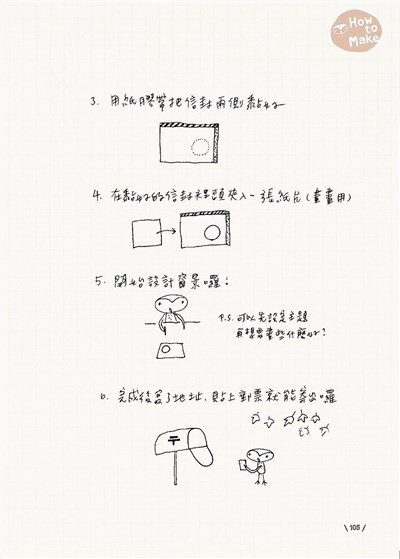 How
to
Make
3. 用紙膠帶把信封兩側黏好
4. 在黏好的信封裡頭夾入一張紙片(畫畫用)
5. 開始設計窗景囉!
P.S. 可以先設定主題
再想要畫些什麼好?
6. 完成後寫了地址、貼上郵票就能寄出囉
〒
\ 105 /